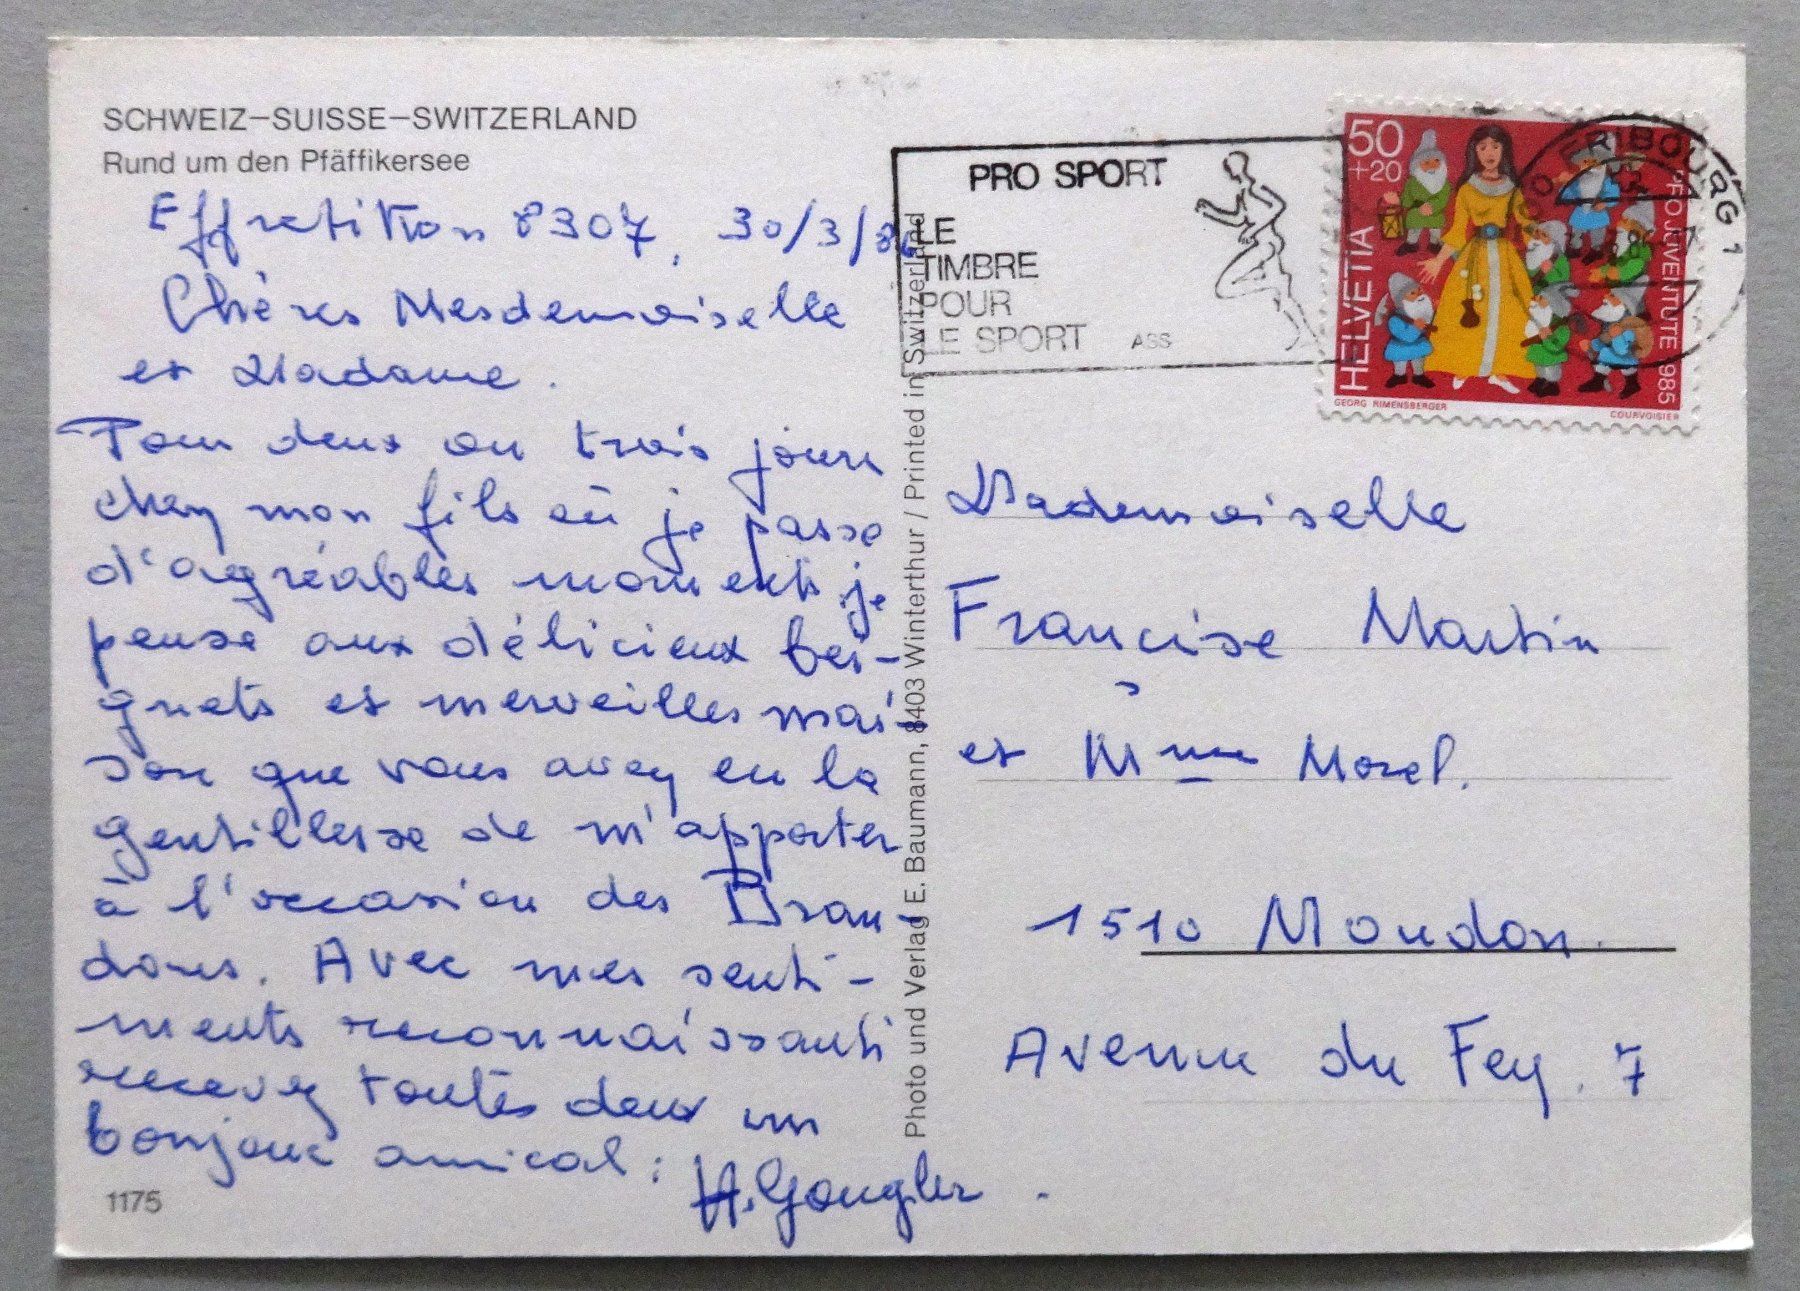 SCHWEIZ–SUISSE–SWITZERLAND
Rund um den Pfäffikersee
Effretikon 8307, 30/3/86
Chères Mesdemoiselle
et Madame.
Pour deux ou trois jours
chez mon fils où je passe
d'agréables moments je
pense aux délicieux bei-
gnets et merveilles mai-
son que vous avez eu la
gentillesse de m'apporter
à l'occasion des Bran-
dons. Avec mes senti-
ments reconnaissants
recevez toutes deux un
bonjour amical:
H. Gougler.
1175
Photo und Verlag E. Baumann, 8403 Winterthur / Printed in Switzerland
PRO SPORT
LE
TIMBRE
POUR
LE SPORT ASS
50
+20
HELVETIA
PRO JUVENTUTE 1985
GEORG RIMENSBERGER
COURVOISIER
FRIBOURG 1
Mademoiselle
Francise Martin
et Mme Morel.
1510 Moudon.
Avenue du Fey. 7